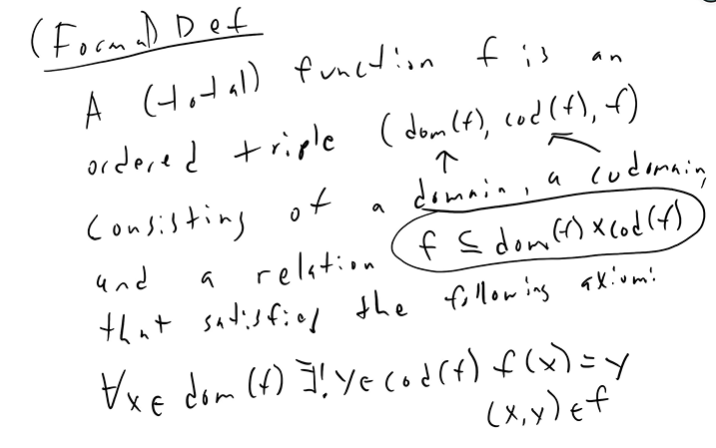 (Formal) Def
A (total) function f is an
ordered triple (dom(f), cod(f), f)
consisting of a domain, a codomain,
and a relation f ⊆ dom(f) × cod(f)
that satisfies the following axiom:
∀x ∈ dom(f) ∃! y ∈ cod(f) f(x) = y
(x,y) ∈ f